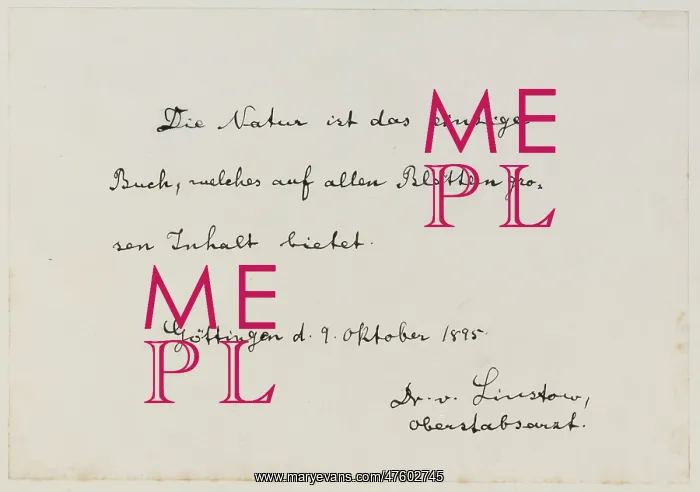 Die Natur ist das einzige
Buch, welches auf allen Blättern gro-
sen Inhalt bietet.
Göttingen d. 9. Oktober 1895.
Dr. v. Linstow,
Oberstabsarzt.
ME
PL
ME
PL
www.maryevans.com/47602745